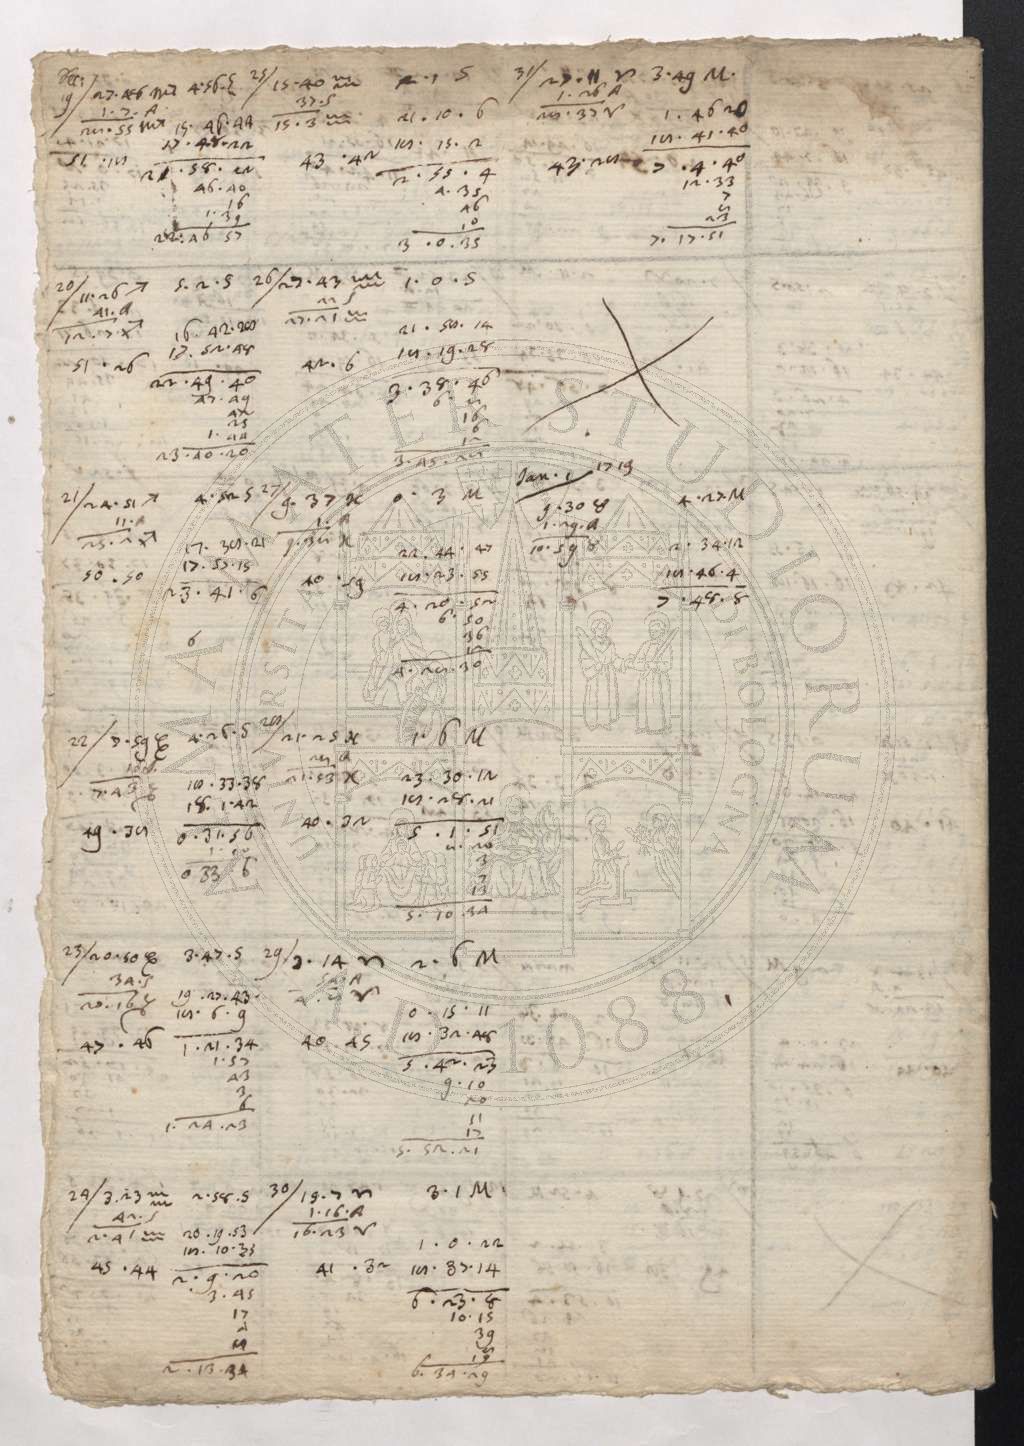 Dec.
19/ 27.46 ♏ 4.56.S
1.7.A
28.53 ♏ 15.46.44
17.48.22
51.18 21.58.22
46.40
16
1.39
22.46.57
25/ 15.40 ♒ 2.1 S
37.S
15.3 ♒ 21.10.6
18.15.2
43.42 2.55.4
4.35
46
10
3.0.35
31/ 27.11 ♈ 3.49 M.
1.26 A
28.37 ♈ 1.46.20
18.41.40
43.28 7.4.40
12.33
7
23
7.17.51
20/ 11.26 ♐ 5.2.S
41.A
12.7 ♐ 16.42.20
17.52.48
51.26 22.49.40
47.49
42
25
1.44
23.40.20
26/ 27.43 ♒ 1.0.S
22 S
27.21 ♒
21.58.14
18.19.28
42.6 3.38.46
16
6
12
3.45.28
21/ 24.51 ♐ 4.52 S
11.A
25.2 ♐ 17.38.21
17.57.15
50.50 23.41.6
6
27/ 9.37 ♓ 0.3 M
1.A
9.38 ♓
22.44.47
18.23.55
40.59 4.20.52
6.50
36
12
4.28.30
Jan. 1 1719
9.30 ♉ 4.27.M
1.29.A
10.59 ♉ 2.34.12
18.46.4
7.48.8
22/ 7.59 ♑ 4.26.S
16.S
7.43 ♑ 18.33.38
18.1.42
49.38 0.31.56
0.33.6
28/ 21.25 ♓ 1.6 M
28 A
21.53 ♓ 23.30.12
18.28.21
40.32 5.1.51
3
7
13
5.10.34
23/ 20.50 ♑ 3.47.S
34.S
20.16 ♑ 19.27.43
18.6.9
47.46 1.21.34
1.57
43
3
6
1.24.23
29/ 3.14 ♈ 2.6 M
0.15.11
18.32.48
40.45 5.42.23
9.10
20
11
17
5.52.21
24/ 3.23 ♒ 2.58.S
42.S
2.41 ♒ 20.19.53
18.10.35
45.44 2.9.20
3.45
17
2.13.34
30/ 15.7 ♈ 3.1 M
1.16.A
16.23 ♈ 1.0.22
18.37.14
41.32 6.23.8
10.15
39
19
6.34.29
ALMA MATER STUDIORUM
UNIVERSITÀ DI BOLOGNA
A.D. 1088